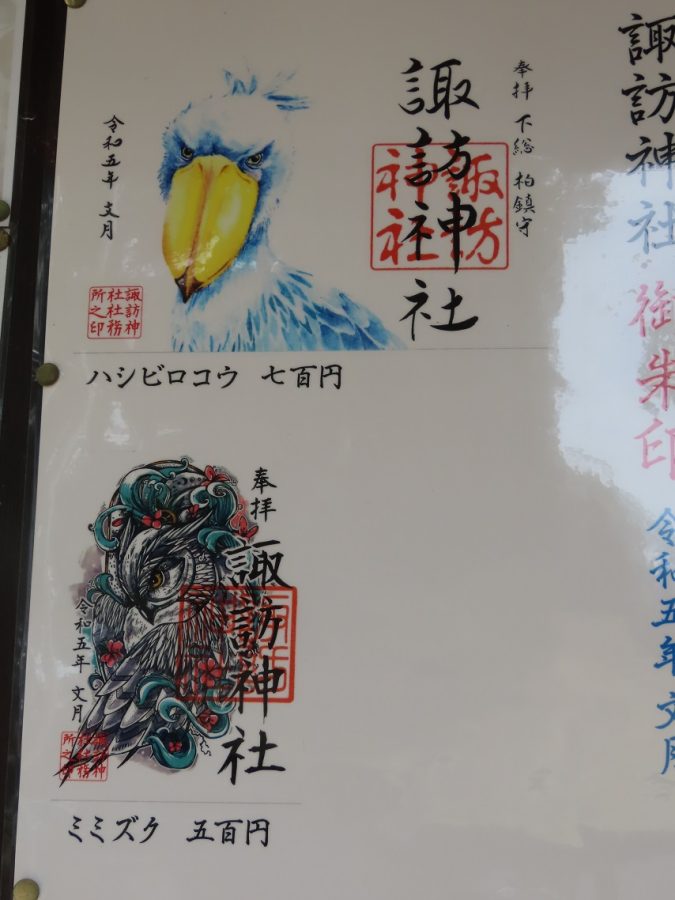 諏訪神社 御朱印 令和五年 文月
奉拝 下総 柏鎮守
諏訪神社
諏訪神社
令和五年 文月
諏訪神
社社務
所之印
ハシビロコウ 七百円
奉拝
諏訪神社
令和五年 文月
諏訪神
社社務
所之印
ミミズク 五百円